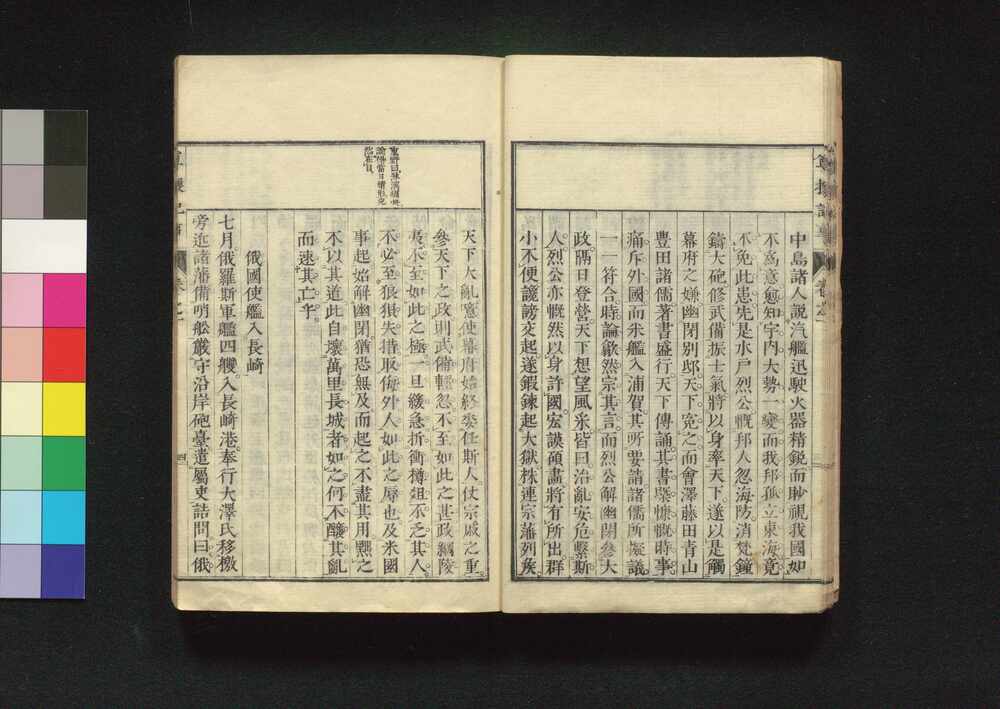 中島諸人說汽艦迅駛火器精銳而眇視我國如
不爲意愈知宇内大勢一變而我邦孤立東海竟
不免此患先是水戶烈公慨邦人忽海防消梵鐘
鑄大砲修武備振士氣將以身率天下遂以是觸
幕府之嫌幽閉別邸天下寃之而會澤藤田青山
豐田諸儒著書盛行天下傳誦其書槩慷慨時事
痛斥外國而米艦入浦賀其所要請諸儒所擬議
一一符合時論歙然宗其言而烈公解幽閉參大
政隅日登營天下想望風釆皆曰治亂安危繫斯
人烈公亦慨然以身許國宏謨碩畫將有所出群
小不便讒謗交起遂鍜鍊起大獄株連宗藩列矦
天下大亂寔使幕府始終委任斯人仗宗戚之重
參天下之政則武備輕忽不至如此之甚政綱陵
夷不至如此之極一旦緩急折衝樽俎不乏其人
不必至狼狽失措取侮外人如此之辱也及米國
事起始解幽閉猶恐無及而起之不盡其用黜之
不以其道此自壞萬里長城者如之何不釀其亂
而速其亡乎
俄國使艦入長崎
七月俄羅斯軍艦四艘入長崎港奉行大澤氏移檄
旁近諸藩備哨舩嚴守沿岸砲臺遣屬吏詰問曰俄
卷之一
四